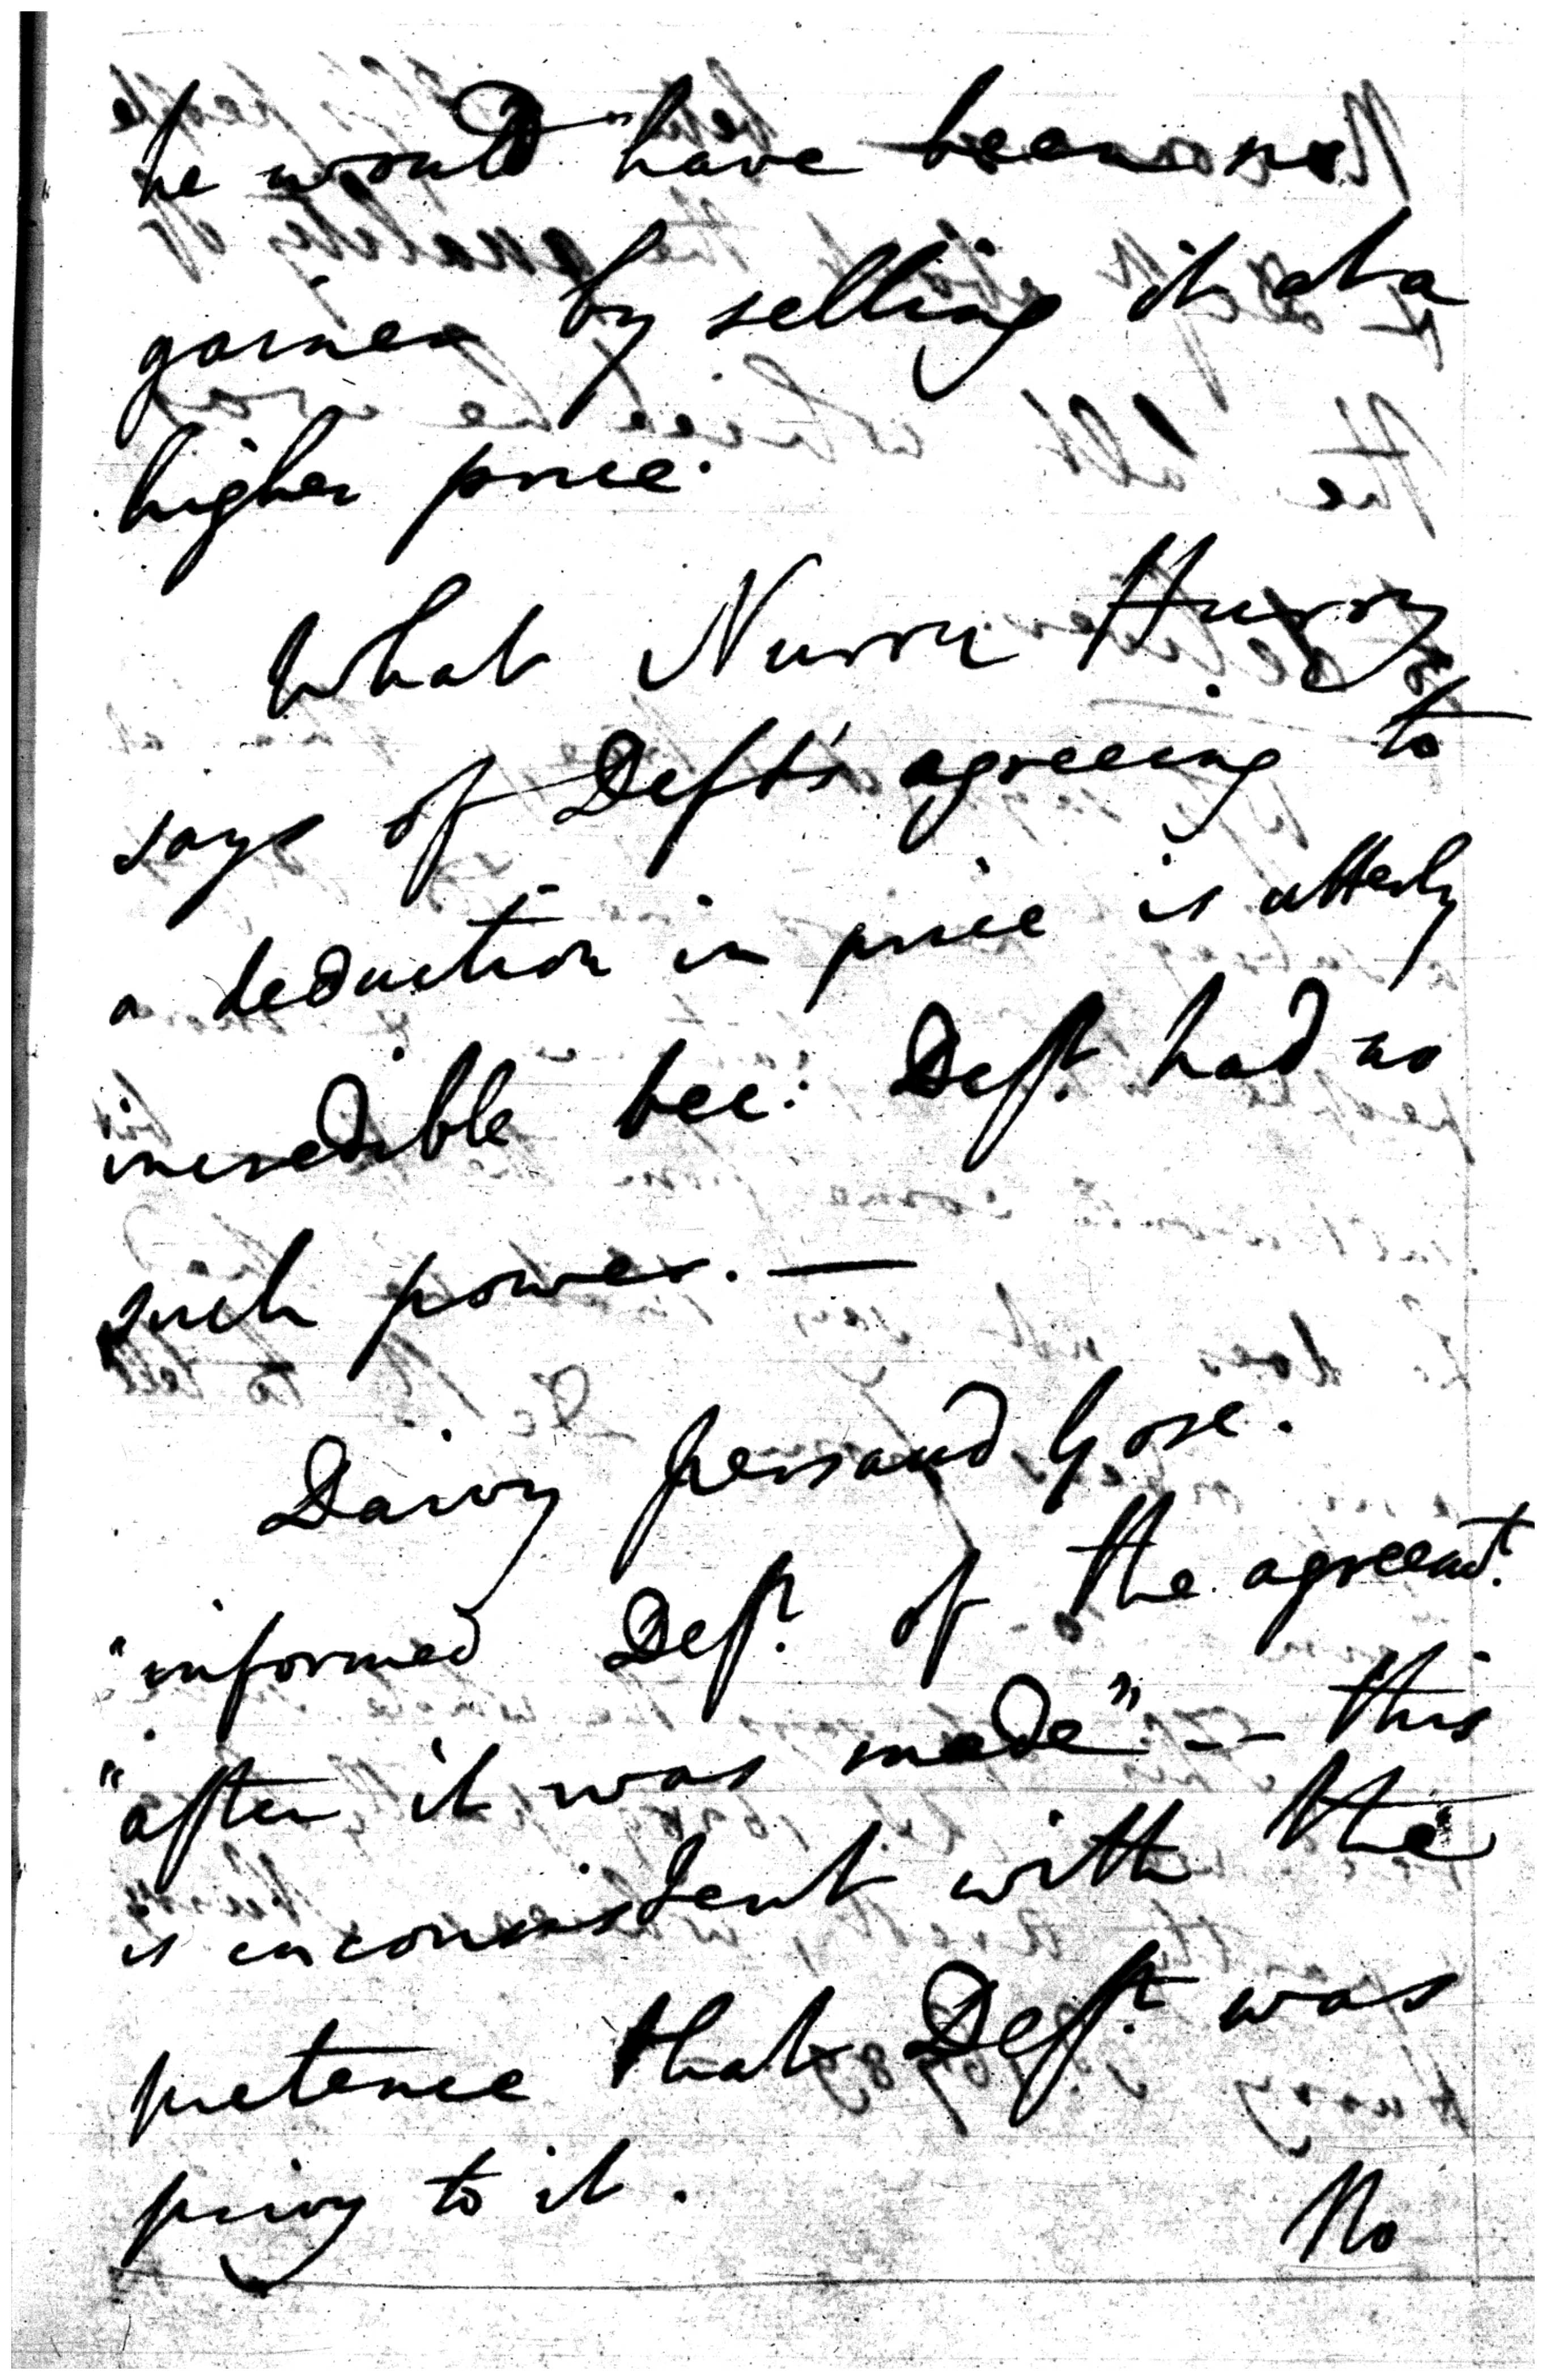 he would have been no
gainer by selling it at a
higher price.
What Nurry Hurry
says of Deft's agreeing to
a deduction in price is utterly
incredible bec: Deft. had no
such power. —
Dairy persaud Gose.
"informed Deft. of the agreemt.
"after it was made" -- this
is inconsistent with the
pretence that Deft. was
privy to it.
No